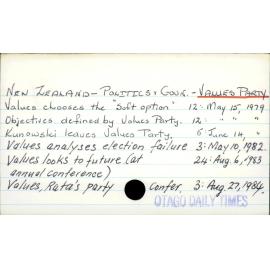 NEW ZEALAND - POLITICS & GOVR. - VALUES PARTY
Values chooses the "soft option" 12: May 15, 1979
Objectives defined by Values Party. 12: " " "
Kunowski leaves Values Party. 5 June 14, "
Values analyses election failure 3: May 10, 1982
Values looks to future (at 24: Aug. 6, 1983
annual conference)
Values, Rata's party confer. 3: Aug. 27, 1984
OTAGO DAILY TIMES